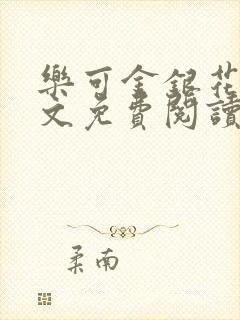 樂可金銀花
文免費閱讀
柔南